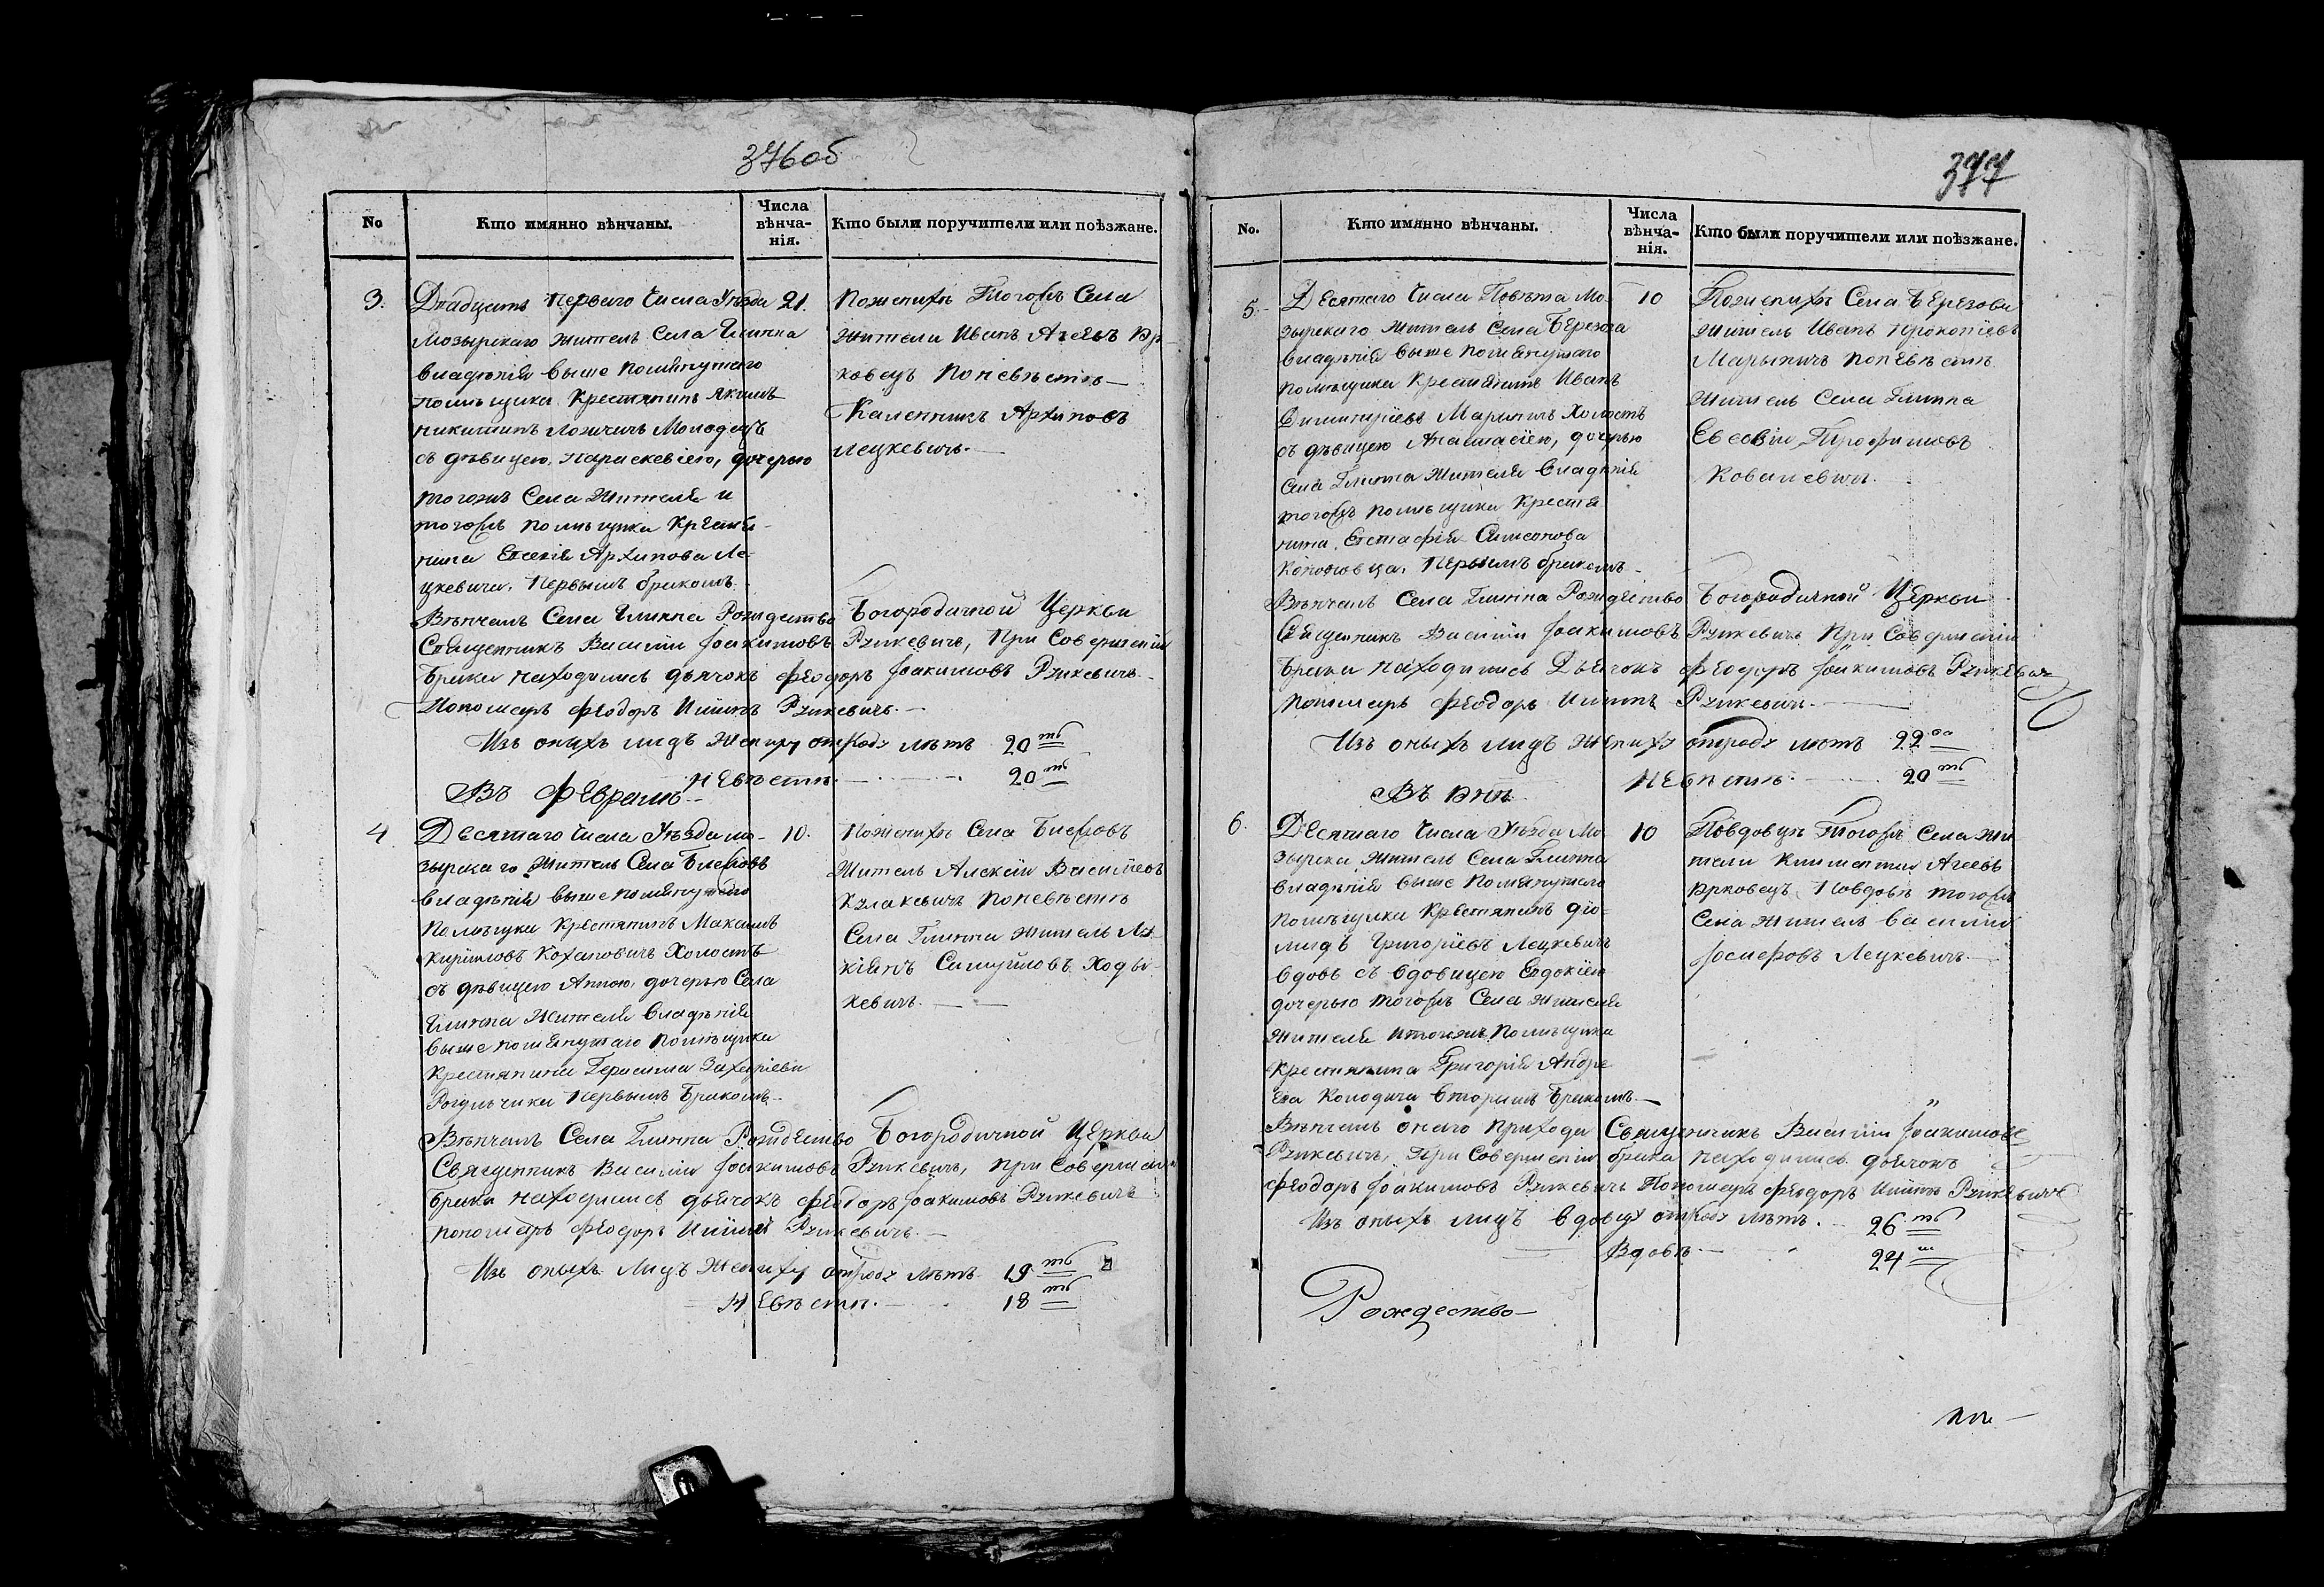 376об
No
Кто имянно вѣнчаны.
Числа вѣнча-нія.
Кто были поручители или поѣзжане.
3.
Двадцать Перваго Числа Уѣзда
Мозырскаго житель Села Глинна
Владѣнія выше помянутаго
помѣщика Крестянинъ Якимъ
Никитинъ Молодецъ
съ дѣвицею Параскевіею, дочерью
тогожъ Села Жителя и
тогожъ помѣщика Крестя-
нина Архипова Ле-
цкевича, Первымъ бракомъ.
21.
Поженихѣ Тогожъ Села
жители Иванъ Агеевъ Яр-
ковецъ Поневѣстѣ
Архиповъ
Лецкевичъ.
Вѣнчалъ Села Глинна Рождество Богородичной Церкви
Священникъ Василій Іоакимовъ Рункевичъ, При Совершеніи
брака находились дьячокъ Феодоръ Іоакимовъ Рункевичъ
Пономарь Феодоръ Рункевичъ.
Изъ оныхъ лицъ Жениху отроду лѣтъ 20ть
Невѣстѣ. 20ть
Въ Февралѣ
4
Десятаго Числа Уѣзда мо-
зырскаго житель Села
владѣнія выше помянутаго
Помѣщика Крестянинъ Максимъ
Кириловъ Кохановичъ Холостъ
съ дѣвицею Анною, дочерью Села
Глинна Жителя владѣнія
выше помянутаго помѣщика
Крестянина Герасима Захаріева
Первымъ Бракомъ
10.
Поженихѣ Села
Житель Алексій Василіевъ
Кулакевичъ Поневѣстѣ
Села Глинна житель
Самуйловъ Ходы-
кевичъ.
Вѣнчалъ Села Глинна Рождество Богородичной Церкви
Священникъ Василій Іоакимовъ Рункевичъ, при Совершеніи
брака находились дьячокъ Феодоръ Іоакимовъ Рункевичъ
пономарь Феодоръ Рункевичъ.
Изъ оныхъ Лицъ Жениху отроду лѣтъ 19ть
Невѣстѣ. 18ть
377
No.
Кто имянно вѣнчаны.
Числа вѣнча-нія.
Кто были поручители или поѣзжане.
5.
Десятаго Числа Повѣта Мо-
зырскаго житель Села Березова
владѣнія выше помянутаго
помѣщика Крестянинъ Иванъ
Холостъ
съ дѣвицею Анастасіею, дочерью
Села Глинна жителя владѣнія
тогожъ помѣщика Крестя
нина Евстафія Симеонова
Первымъ бракомъ
10
Поженихѣ Села Березова
житель Иванъ Прокопіевъ
Марыничъ Поневѣстѣ
житель Села Глинна
Трофимовъ
Ковалевичъ.
Вѣнчалъ Села Глинна Рождество Богородичной Церкви
Священникъ Василій Іоакимовъ Рункевичъ При Совершеніи
брака находились Дьячокъ Феодоръ Іоакимовъ Рункевичъ
пономарь Феодоръ Рункевичъ.
Изъ оныхъ лицъ Жениху отроду лѣтъ 22
Невѣстѣ. 20ть
6.
Десятаго Числа Уѣзда Мо-
зырска житель Села Глинна
владѣнія выше Помянутаго
помѣщика Крестянинъ Діо-
мидъ Григоріевъ Лецкевичъ
вдовъ съ вдовицею Евдокіею
дочерью тогожъ Села жителя
жителя итогожъ Помѣщика
Крестянина Григорія Андре
ева Колодича Вторымъ Бракомъ.
10
Повдовцѣ Тогожъ Села жи
тели Климентій Агеевъ
Ярковецъ Повдовѣ тогожъ
Села житель Василій
Іосифовъ Лецкевичъ.
Вѣнчалъ онаго Прихода Священникъ Василій Іоакимовъ
Рункевичъ, При Совершеніи брака находились дьячокъ
Феодоръ Іоакимовъ Рункевичъ Пономарь Феодоръ Рункевичъ
Изъ оныхъ лицъ вдовцу отроду лѣтъ. 26ть
Вдовѣ. 24
Рождество